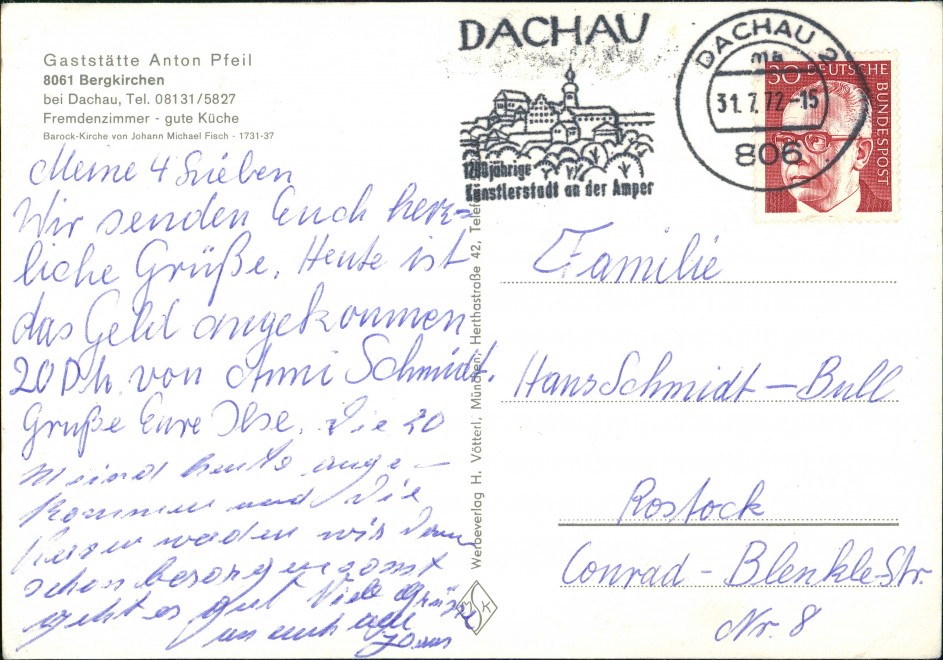 Gaststätte Anton Pfeil
8061 Bergkirchen
bei Dachau, Tel. 08131/5827
Fremdenzimmer - gute Küche
Barock-Kirche von Johann Michael Fisch - 1731-37
Meine 4 Lieben
Wir senden Euch herz=
liche Grüße. Heute ist
das Geld angekommen
20 D.M. von Anni Schmidt.
Gruße Eure Ilse. Die 20
M sind heute ange-
kommen und die
waden wir dann
schon besorgen sonst
geht es gut Viele Grüße
an euch alle
DACHAU
1200jährige
Künstlerstadt an der Amper
DACHAU 2
ma
31.7.72-15
806
30 DEUTSCHE
BUNDESPOST
Werbeverlag H. Vötterl, München, Herthastraße 42, Telef
K
Familie
Hans Schmidt - Bull
Rostock
Conrad - Blenkle-Str.
Nr. 8